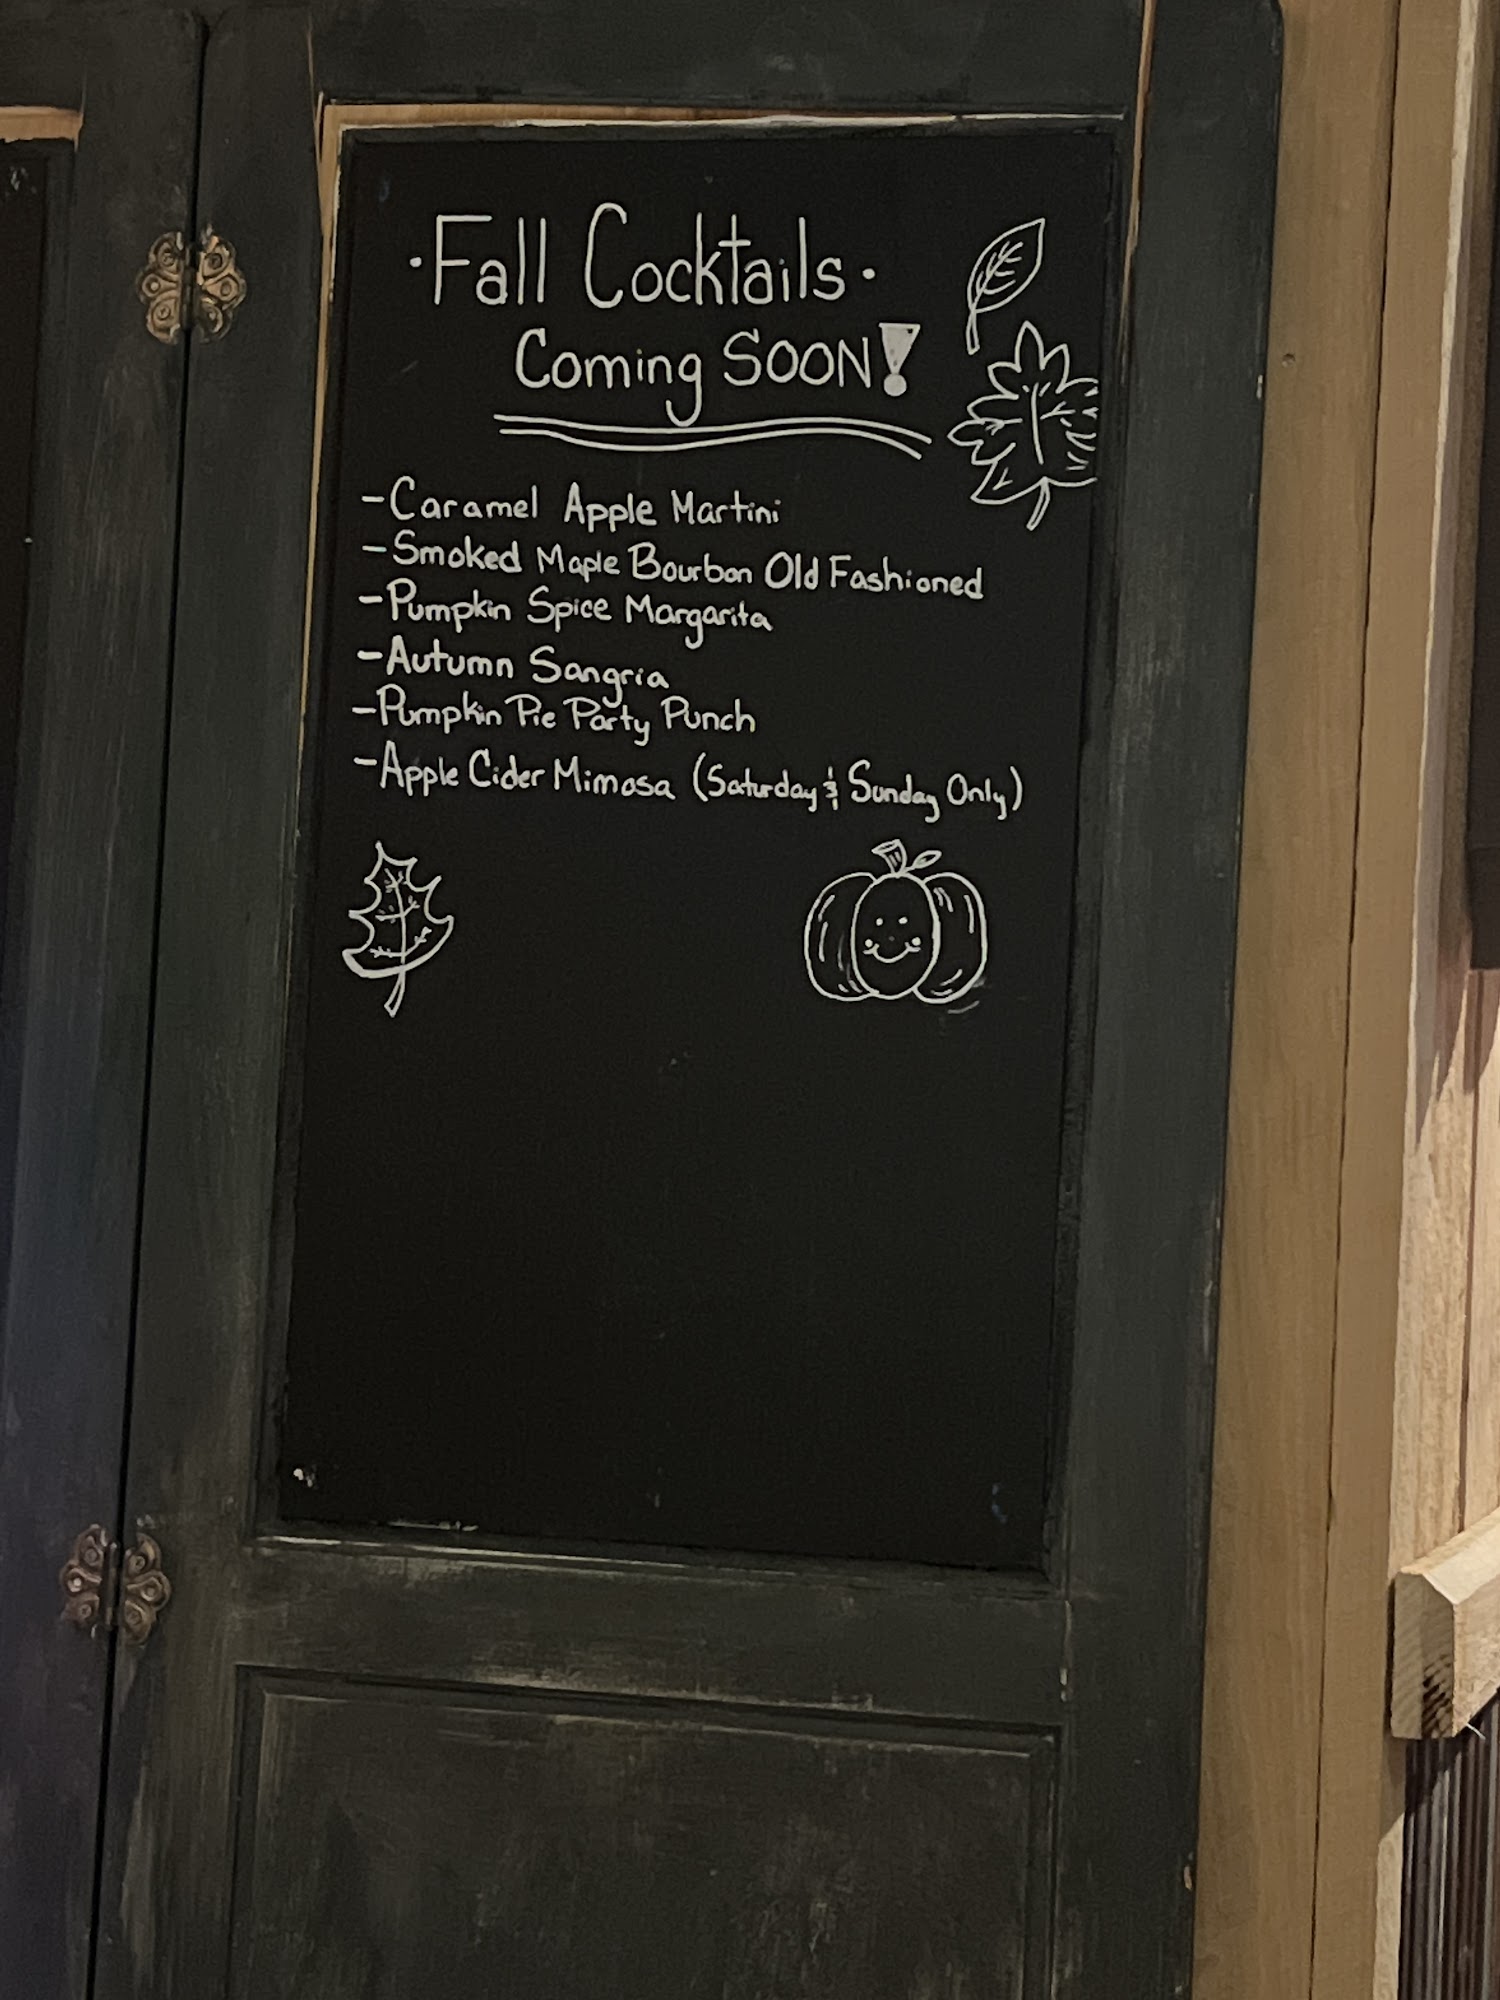 ·Fall Cocktails·
Coming SOON!
-Caramel Apple Martini
-Smoked Maple Bourbon Old Fashioned
-Pumpkin Spice Margarita
-Autumn Sangria
-Pumpkin Pie Party Punch
-Apple Cider Mimosa (Saturday & Sunday Only)